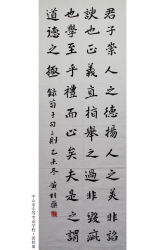 君子崇人之德揚人之美非諂
諛也正義直指舉之過非毀疵
也學至乎禮而止矣夫是之謂
道德之極 錄荀子句二則乙未冬 黃